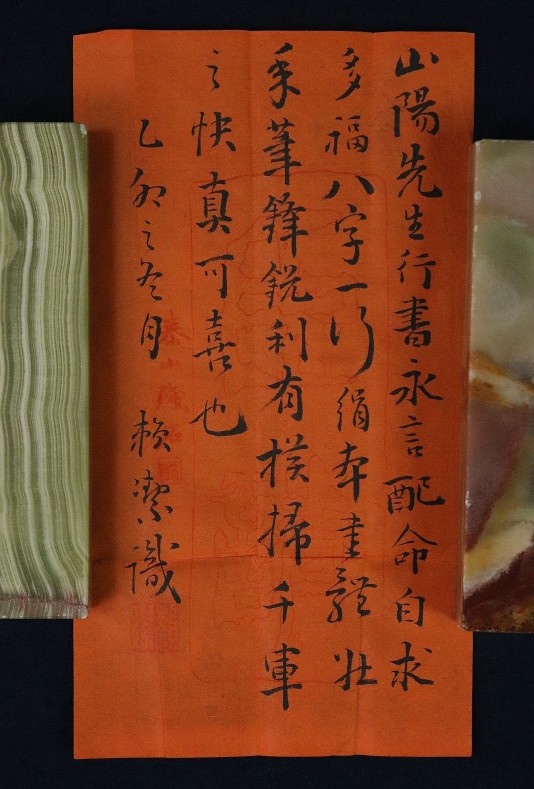 山陽先生行書永言配命自求
多福八字一行絹本書體壯
筆鋒鋭利有横掃千軍
之快真可喜也
乙卯之冬月 賴潔識